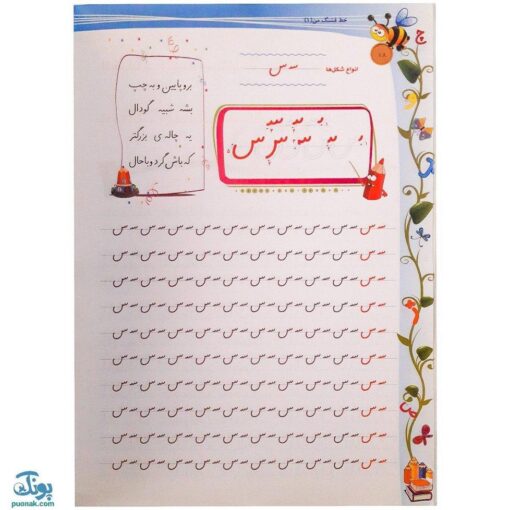 خط قشنگ من (۱)
انواع شکل‌ها
سـ س
برو پایین و به چپ
بشه شبیه گودال
یه چاله ی بزرگتر
که باش گرد و با حال
سـ س سـ س سـ س سـ س سـ س سـ س سـ س سـ س سـ س سـ س
سـ س سـ س سـ س سـ س سـ س سـ س سـ س سـ س سـ س سـ س
سـ س سـ س سـ س سـ س سـ س سـ س سـ س سـ س سـ س سـ س
سـ س سـ س سـ س سـ س سـ س سـ س سـ س سـ س سـ س سـ س
سـ س سـ س سـ س سـ س سـ س سـ س سـ س سـ س سـ س سـ س
سـ س سـ س سـ س سـ س سـ س سـ س سـ س سـ س سـ س سـ س
سـ س سـ س سـ س سـ س سـ س سـ س سـ س سـ س سـ س سـ س
سـ س سـ س سـ س سـ س سـ س سـ س سـ س سـ س سـ س سـ س
سـ س سـ س سـ س سـ س سـ س سـ س سـ س سـ س سـ س سـ س
سـ س سـ س سـ س سـ س سـ س سـ س سـ س سـ س سـ س سـ س
پونک
puonak.com